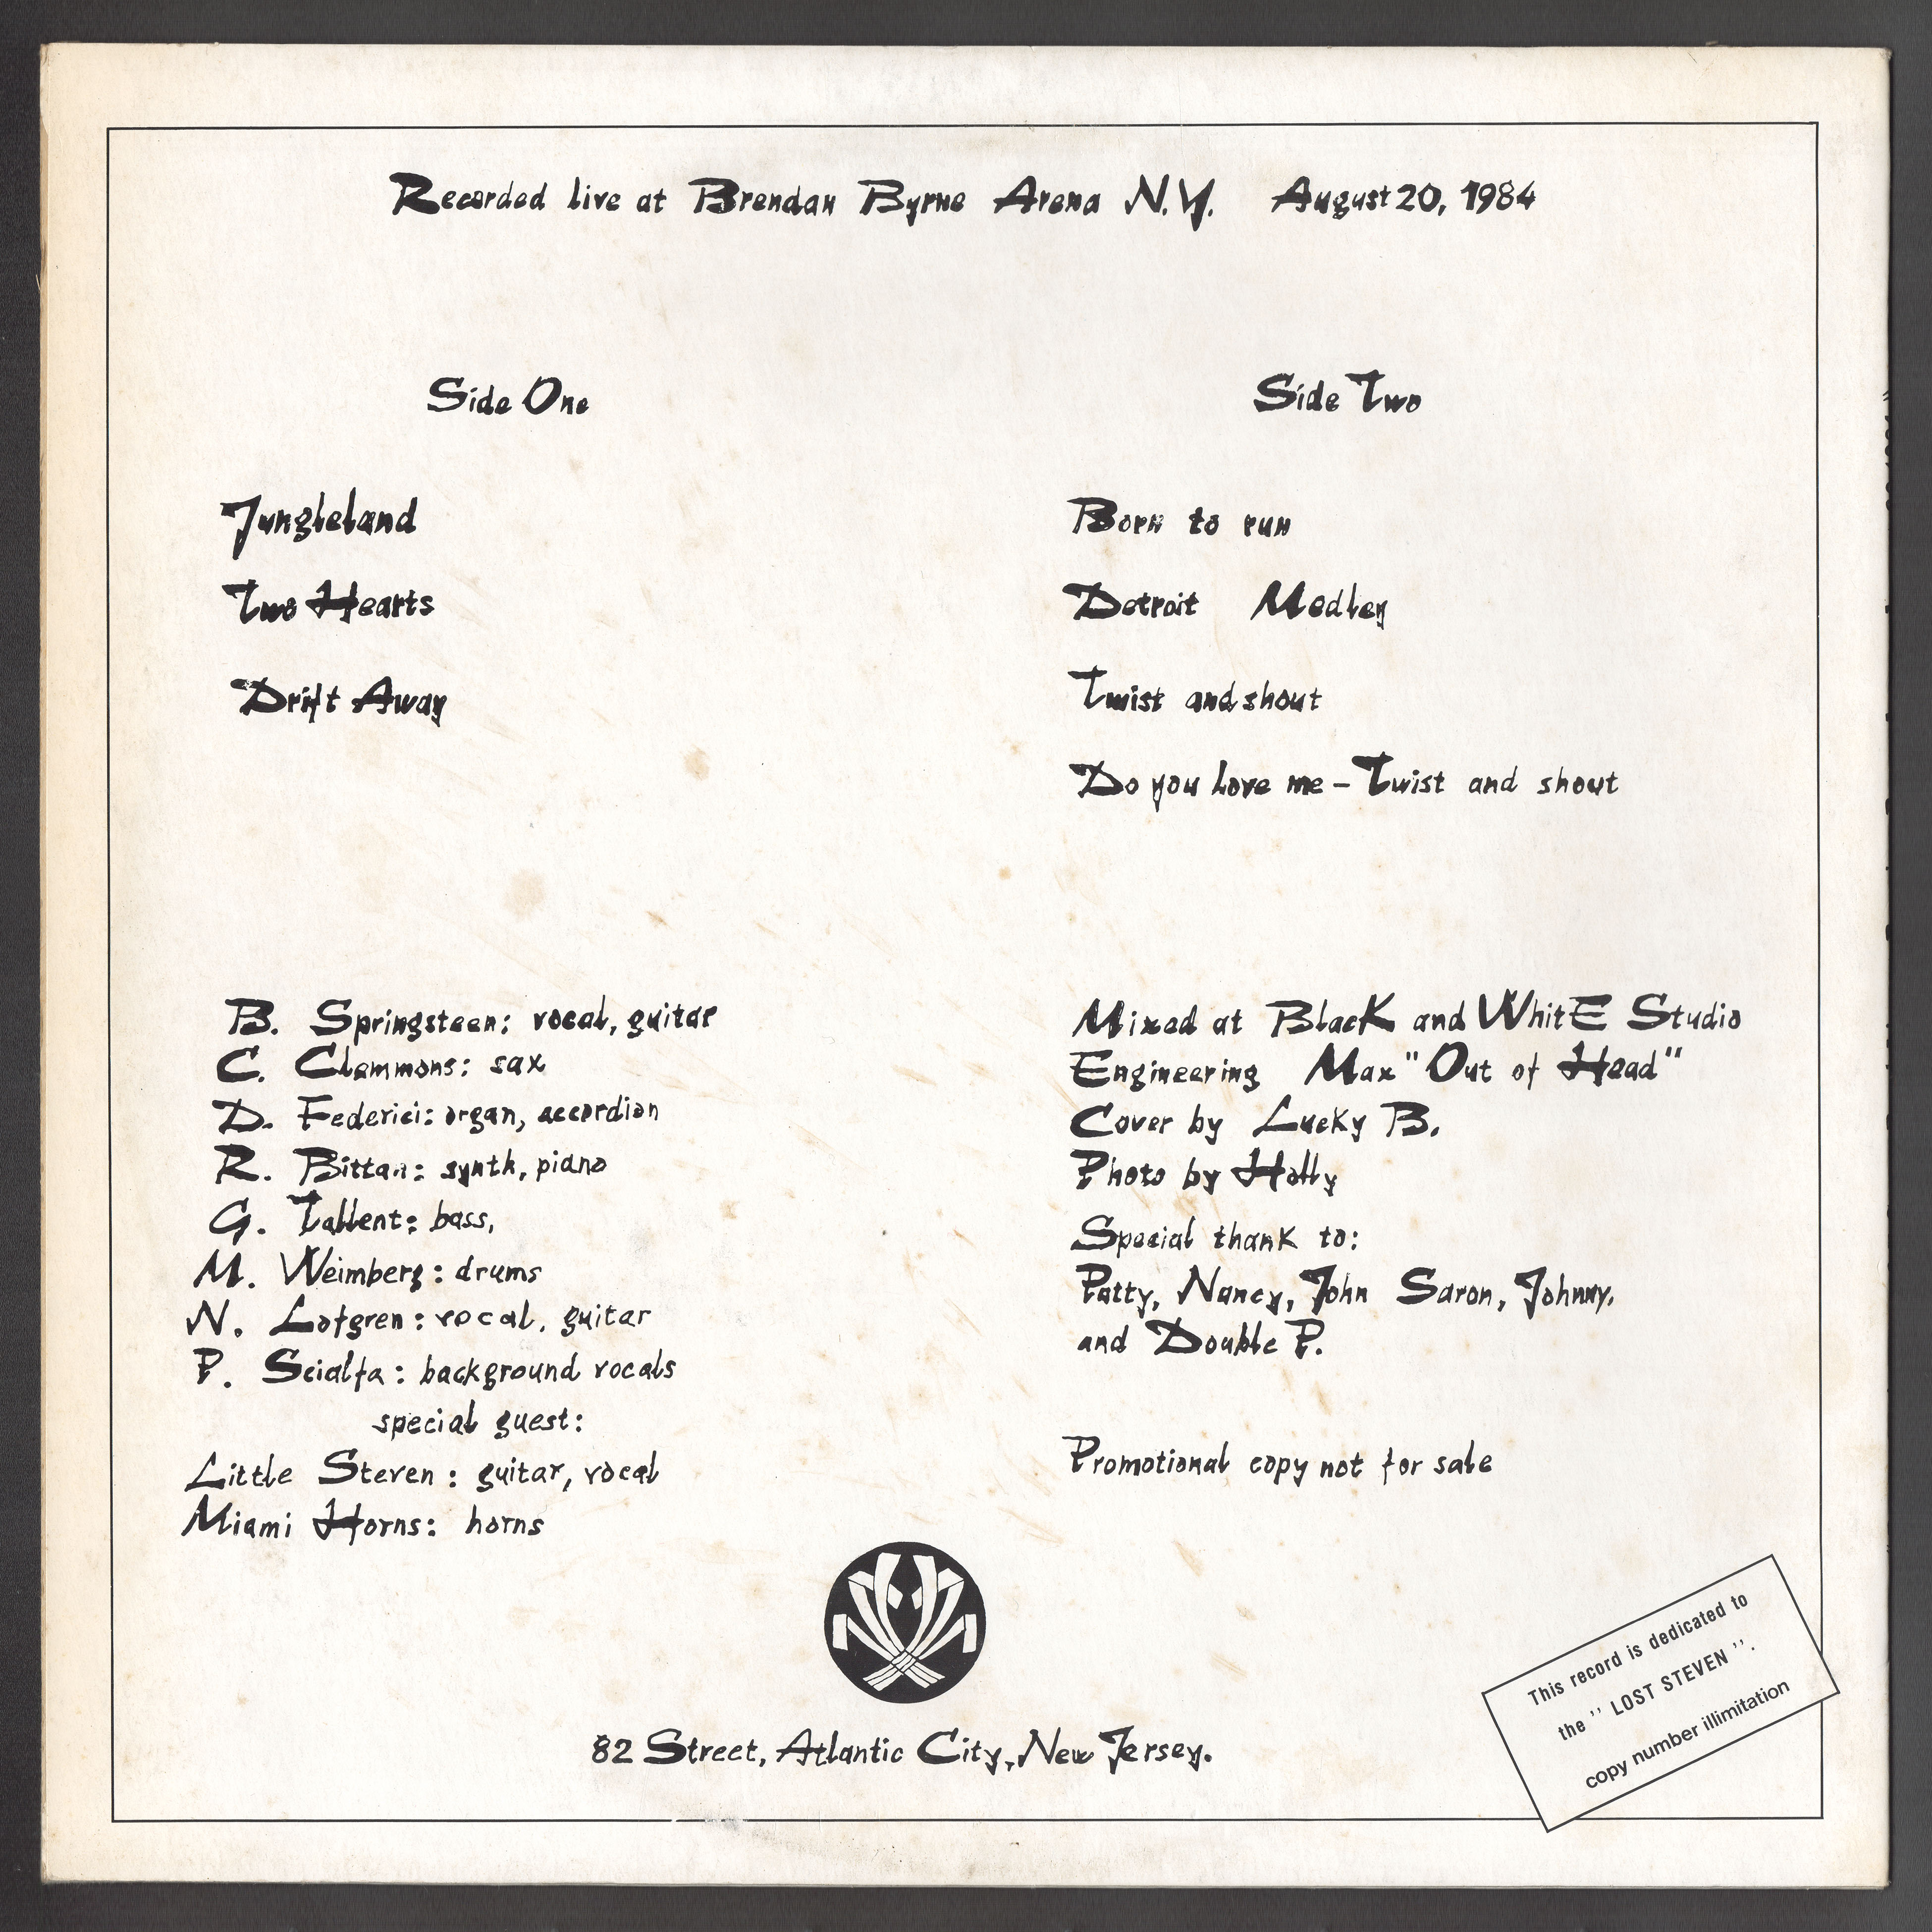 Recorded live at Brendan Byrne Arena N.Y. August 20, 1984
Side One
Jungleland
Two Hearts
Drift Away
Side Two
Born to run
Detroit Medley
Twist and shout
Do you love me – Twist and shout
B. Springsteen: vocal, guitar
C. Clemmons: sax
D. Federici: organ, accordion
R. Bittan: synth, piano
G. Tallent: bass,
M. Weimberg: drums
N. Lofgren: vocal, guitar
P. Scialfa: background vocals
special guest:
Little Steven: guitar, vocal
Miami Horns: horns
Mixed at BlacK and WhitE Studio
Engineering Max "Out of Head"
Cover by Lucky B.
Photo by Holly
Special thank to:
Patty, Nancy, John Saron, Johnny,
and Double P.
Promotional copy not for sale
82 Street, Atlantic City, New Jersey.
This record is dedicated to
the '' LOST STEVEN ''.
copy number illimitation